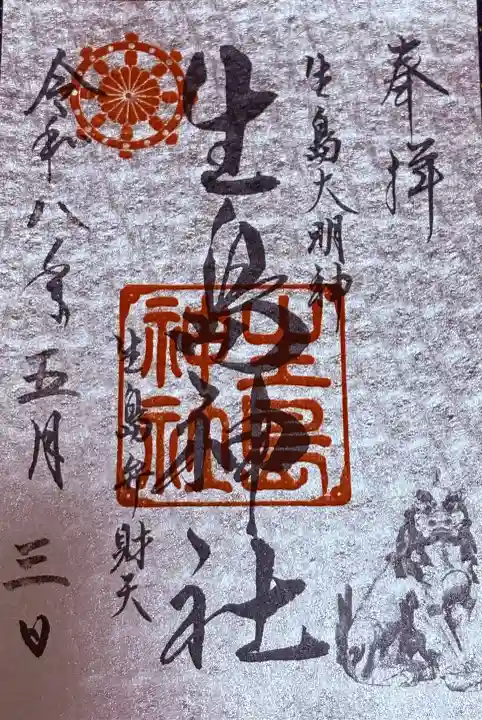 奉拝
生島大明神
生島神社
生島神社
生島弁財天
令和八年五月三日